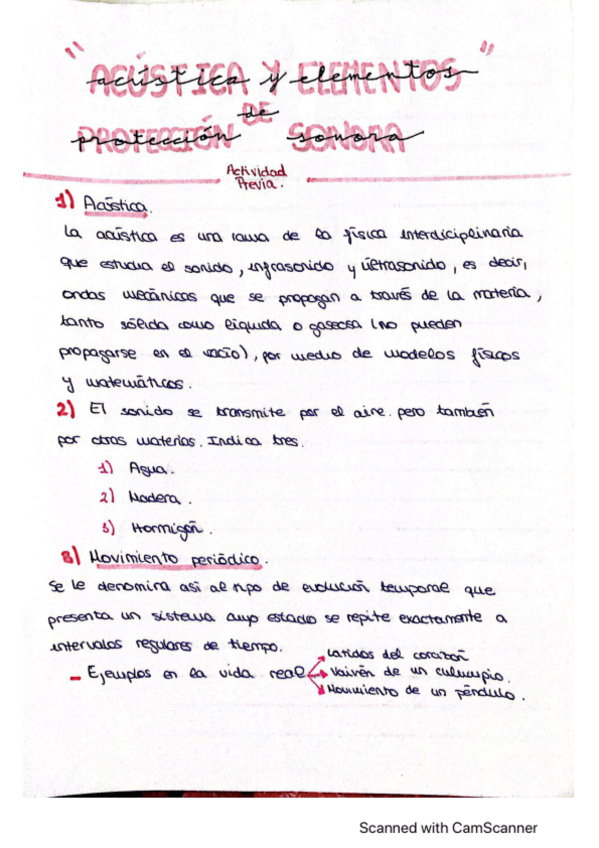 "ACÚSTICA Y ELEMENTOS"
DE
PROTECCIÓN SONORA
Actividad
Previa.
1) Acústica.
La acústica es una rama de la física interdiciplinaria
que estudia el sonido, infrasonido y últrasonido, es decir,
ondas mecánicas que se propagan a través de la materia,
tanto sólida como líquida o gaseosa (no pueden
propagarse en el vacío), por medio de modelos físicos
y matemáticos.
2) El sonido se transmite por el aire. pero también
por otras materias. Indica tres.
1) Agua.
2) Madera.
3) Hormigón.
3) Movimiento periódico.
Se le denomina así al tipo de evolución temporal que
presenta un sistema cuyo estado se repite exactamente a
intervalos regulares de tiempo.
- Ejemplos en la vida real
Latidos del corazón
Vaivén de un columpio.
Movimiento de un péndulo.
Scanned with CamScanner